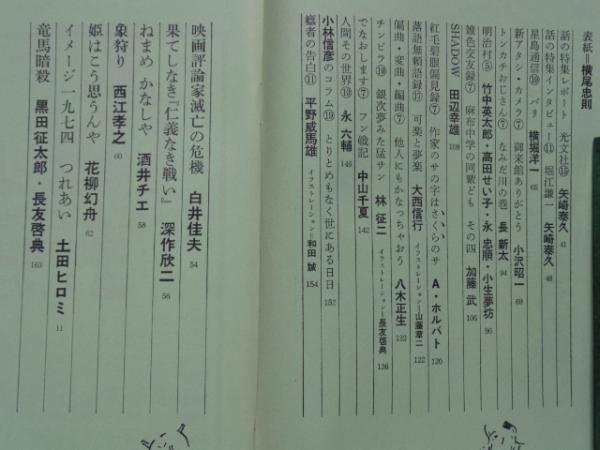 表紙 横尾忠則
話の特集レポート 光文社⑬ 矢崎泰久 41
話の特集インタビュー⑪ 堀江謙一 矢崎泰久 48
星島通信⑩ パリ 横堀洋一 65
新アタシ・カメラ⑦ 御来館ありがとう 小沢昭一 69
トンカチおじさん⑦ なみだ川の巻 長 新太 94
明治村⑤ 竹中英太郎・高田せい子・永 忠順・小生夢坊 96
雑色交友録⑦ 麻布中学の同輩ども その四 加藤 武 106
SHADOW 田辺幸雄 108
紅毛碧眼偏見録⑦ 作家のサの字はさくらのサ A・ホルバト 120
落語無頼語録⑪ 可楽と夢楽 大西信行 イラストレーション=山藤章二 122
偏曲・変曲・編曲⑦ 他人にもかなっちゃおう 八木正生 132
チンピラ⑩ 銀次夢みた猛サン 林 征二 イラストレーション=長友啓典 136
でなおします⑦ フン戦記 中山千夏 142
人間その世界⑩ 永 六輔 146
小林信彦のコラム⑲ とりとめもなく世にある日日 152
癮者の告白⑪ 平野威馬雄 イラストレーション=和田 誠 154
映画評論家滅亡の危機 白井佳夫 54
果てしなき『仁義なき戦い』 深作欣二 56
ねまめ かなしや 酒井チエ 58
象狩り 西江孝之 60
姫はこう思うんや 花柳幻舟 62
イメージ一九七四 つれあい 土田ヒロミ 11
竜馬暗殺 黒田征太郎・長友啓典 163